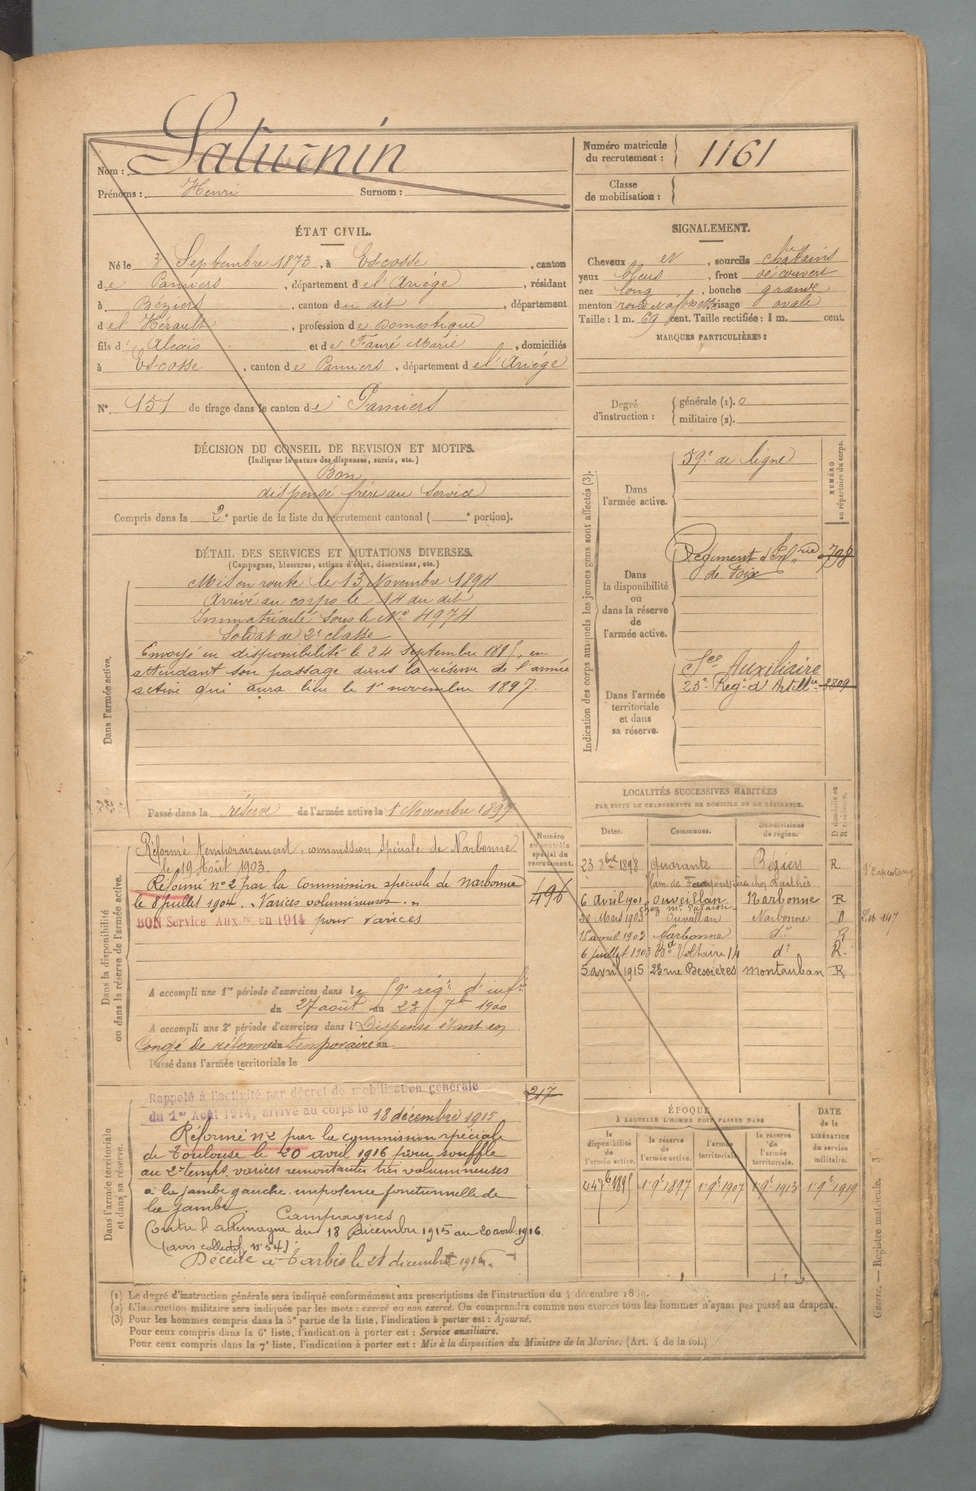 Nom : Saturnin
Prénoms : Henri Surnom :
Numéro matricule du recrutement : 1161
Classe de mobilisation :
ÉTAT CIVIL.
Né le 3 Septembre 1873, à Escosse, canton
de Pamiers, département de l'Ariége, résidant
à Béziers, canton du dit, département
de l'Hérault, profession de domestique
fils d' Alexis et de Fauré Marie, domiciliés
à Escosse, canton de Pamiers, département de l'Ariége
N° 151 de tirage dans le canton de Pamiers
SIGNALEMENT.
Cheveux et, sourcils châtains
yeux bleus, front découvert
nez long, bouche grande
menton rond visage ovale
Taille : 1 m. 69 cent. Taille rectifiée : 1 m. cent.
MARQUES PARTICULIÈRES :
Degré d'instruction : générale (1). 0
militaire (2).
DÉCISION DU CONSEIL DE REVISION ET MOTIFS.
(Indiquer la nature des dispenses, sursis, etc.)
Bon
dispensé frère au Service
Compris dans la 2e partie de la liste du recrutement cantonal ( e portion).
DÉTAIL DES SERVICES ET MUTATIONS DIVERSES.
(Campagnes, blessures, actions d'éclat, décorations, etc.)
Dans l'armée active.
Mis en route le 13 Novembre 1894
Arrivé au corps le 14 du dit
Immatriculé sous le N° 4974
Soldat de 2e classe
Envoyé en disponibilité le 24 Septembre 1895, en
attendant son passage dans la réserve de l'armée
active qui aura lieu le 1er novembre 1897.
Passé dans la réserve de l'armée active le 1 Novembre 1897
Dans la disponibilité ou dans la réserve de l'armée active.
Numéro au contrôle spécial du recrutement.
Réformé temporairement, commission spéciale de Narbonne
le 19 Août 1903.
Réformé n° 2 par la commission spéciale de Narbonne
le 8 juillet 1904. "Varices volumineuses"
496
BON Service Auxre en 1914 pour varices
A accompli une 1re période d'exercices dans le 59e régt d'inf.
du 27 août au 23 7bre 1900
A accompli une 2e période d'exercices dans l Dispensé étant en
congé de réforme du temporaire au
Passé dans l'armée territoriale le
Dans l'armée territoriale et dans sa réserve.
217
Rappelé à l'activité par décret de mobilisation générale
du 1er Août 1914, arrivé au corps le 18 décembre 1915
Réformé n° 2 par la commission spéciale
de Toulouse le 20 avril 1916 pour souffle
au 2e temps, varices remontantes très volumineuses
à la jambe gauche. impotence fonctionnelle de
la jambe. Campagnes
Contre l'allemagne du 18 Décembre 1915 au 20 avril 1916.
(avis collectif n° 54)
Décédé à Tarbis le 21 décembre 1916.
Indication des corps auxquels les jeunes gens sont affectés (3).
NUMÉRO au répertoire du corps.
Dans l'armée active.
59e de ligne
Dans la disponibilité ou dans la réserve de l'armée active.
Régiment d'Infrie 798
de Foix
Dans l'armée territoriale et dans sa réserve.
Sce Auxiliaire
23e Regt d'Artillie
LOCALITÉS SUCCESSIVES HABITÉES
PAR SUITE DE CHANGEMENTS DE DOMICILE OU DE RÉSIDENCE.
Dates. Communes. Subdivisions de région. D domicile ou R résidence.
23 8bre 1898 Quarante Béziers R
6 avril 1901 Ouveillan Narbonne R
Mars 1902 Ouveillan Narbonne D
15 avril 1902 Narbonne do R
6 juillet 1903 Bd Voltaire 14 do R.
5 avril 1915 23 rue Bessières Montauban R
ÉPOQUE
À LAQUELLE L'HOMME DOIT PASSER DANS
la disponibilité de l'armée active. la réserve de l'armée active. l'armée territoriale. la réserve de l'armée territoriale.
DATE de la LIBÉRATION du service militaire.
1er 9bre 1897 1er 9bre 1907 1er 9bre 1913 1er 9bre 1919
(1) Le degré d'instruction générale sera indiqué conformément aux prescriptions de l'instruction du 4 décembre 1889.
(2) L'instruction militaire sera indiquée par les mots : exercé ou non exercé. On comprendra comme non exercés tous les hommes n'ayant pas passé au drapeau.
(3) Pour les hommes compris dans la 5e partie de la liste, l'indication à porter est : Ajourné.
Pour ceux compris dans la 6e liste, l'indication à porter est : Service auxiliaire.
Pour ceux compris dans la 7e liste, l'indication à porter est : Mis à la disposition du Ministre de la Marine. (Art. 4 de la loi.)
Guerre. — Registre matricule. 3